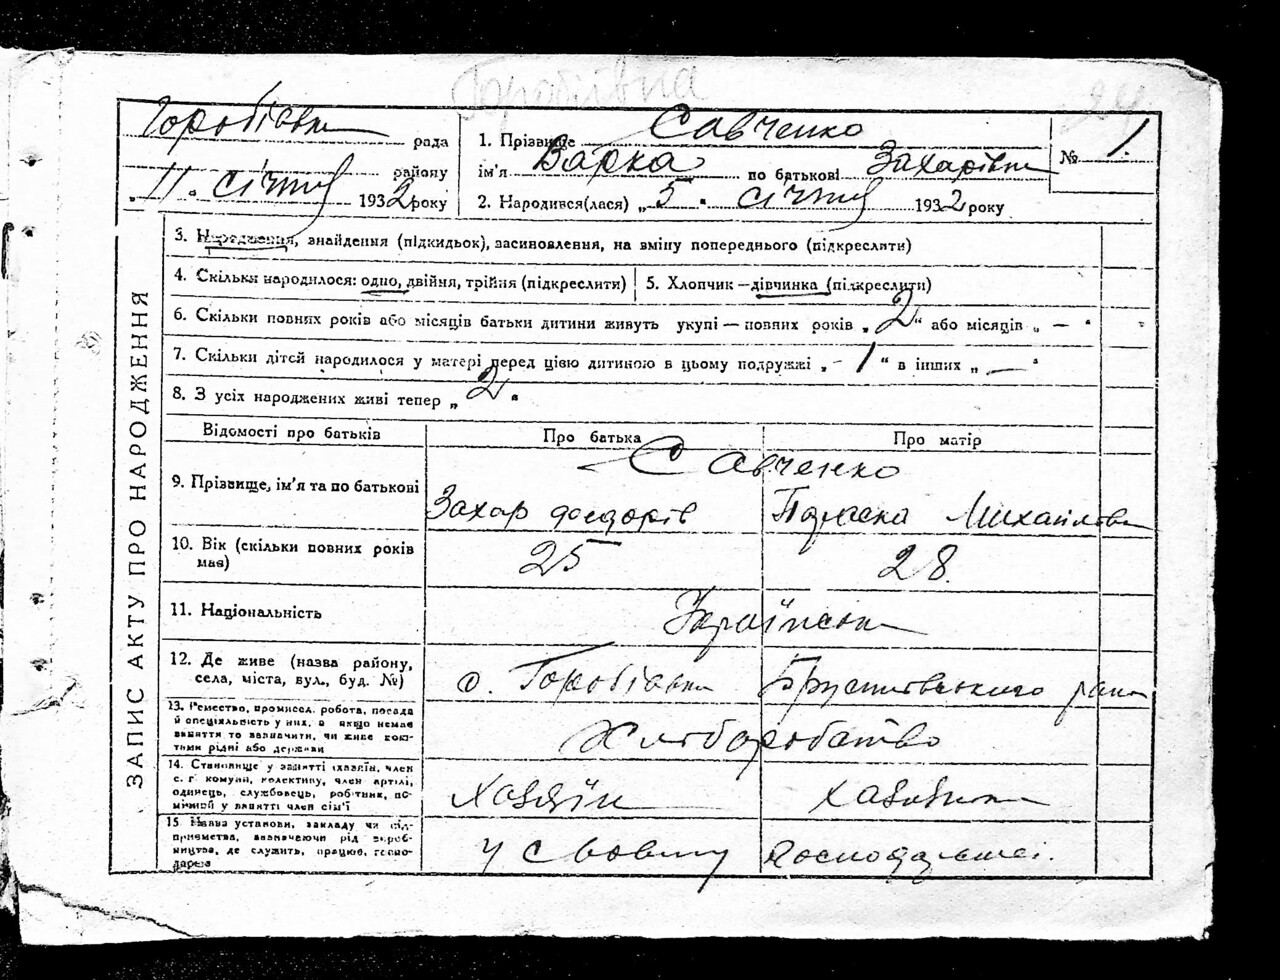 Горобіївка
24
Горобіївка рада
району
„11" січня 1932 року
1. Прізвище Савченко
ім'я Варка по батькові Захарівна
2. Народився(лася) „5" січня 1932 року
№ 1
ЗАПИС АКТУ ПРО НАРОДЖЕННЯ
3. Народження, знайдення (підкидьок), засиновлення, на зміну попереднього (підкреслити)
4. Скільки народилося: одно, двійня, трійня (підкреслити)
5. Хлопчик — дівчинка (підкреслити)
6. Скільки повних років або місяців батьки дитини живуть укупі — повних років „2" або місяців „—"
7. Скільки дітей народилося у матері перед цією дитиною в цьому подружжі „-1" в інших „—"
8. З усіх народжених живі тепер „2"
Відомості про батьків
Про батька
Про матір
9. Прізвище, ім'я та по батькові
Савченко
Захар Федорів
Параска Михайлівна
10. Вік (скільки повних років має)
25
28
11. Національність
Українська
12. Де живе (назва району,
села, міста, вул., буд. №)
с. Горобіївка Брусилівського району
13. Ремество, промисел, робота, посада
й спеціяльність у них, а якщо немає
заняття то зазначити, чи живе кош-
тами рідні або держави
Хліборобство
14. Становище у занятті (хазяїн, член
с. г. комуни, колективу, член артілі,
одинець, службовець, робітник, по-
мічний у занятті член сім'ї
хазяїн
хазяйка
15. Назва установи, закладу чи під-
приємства, зазначаючи рід вироб-
ництва, де служить, працює, госпо-
дарює
у своєму господарстві.